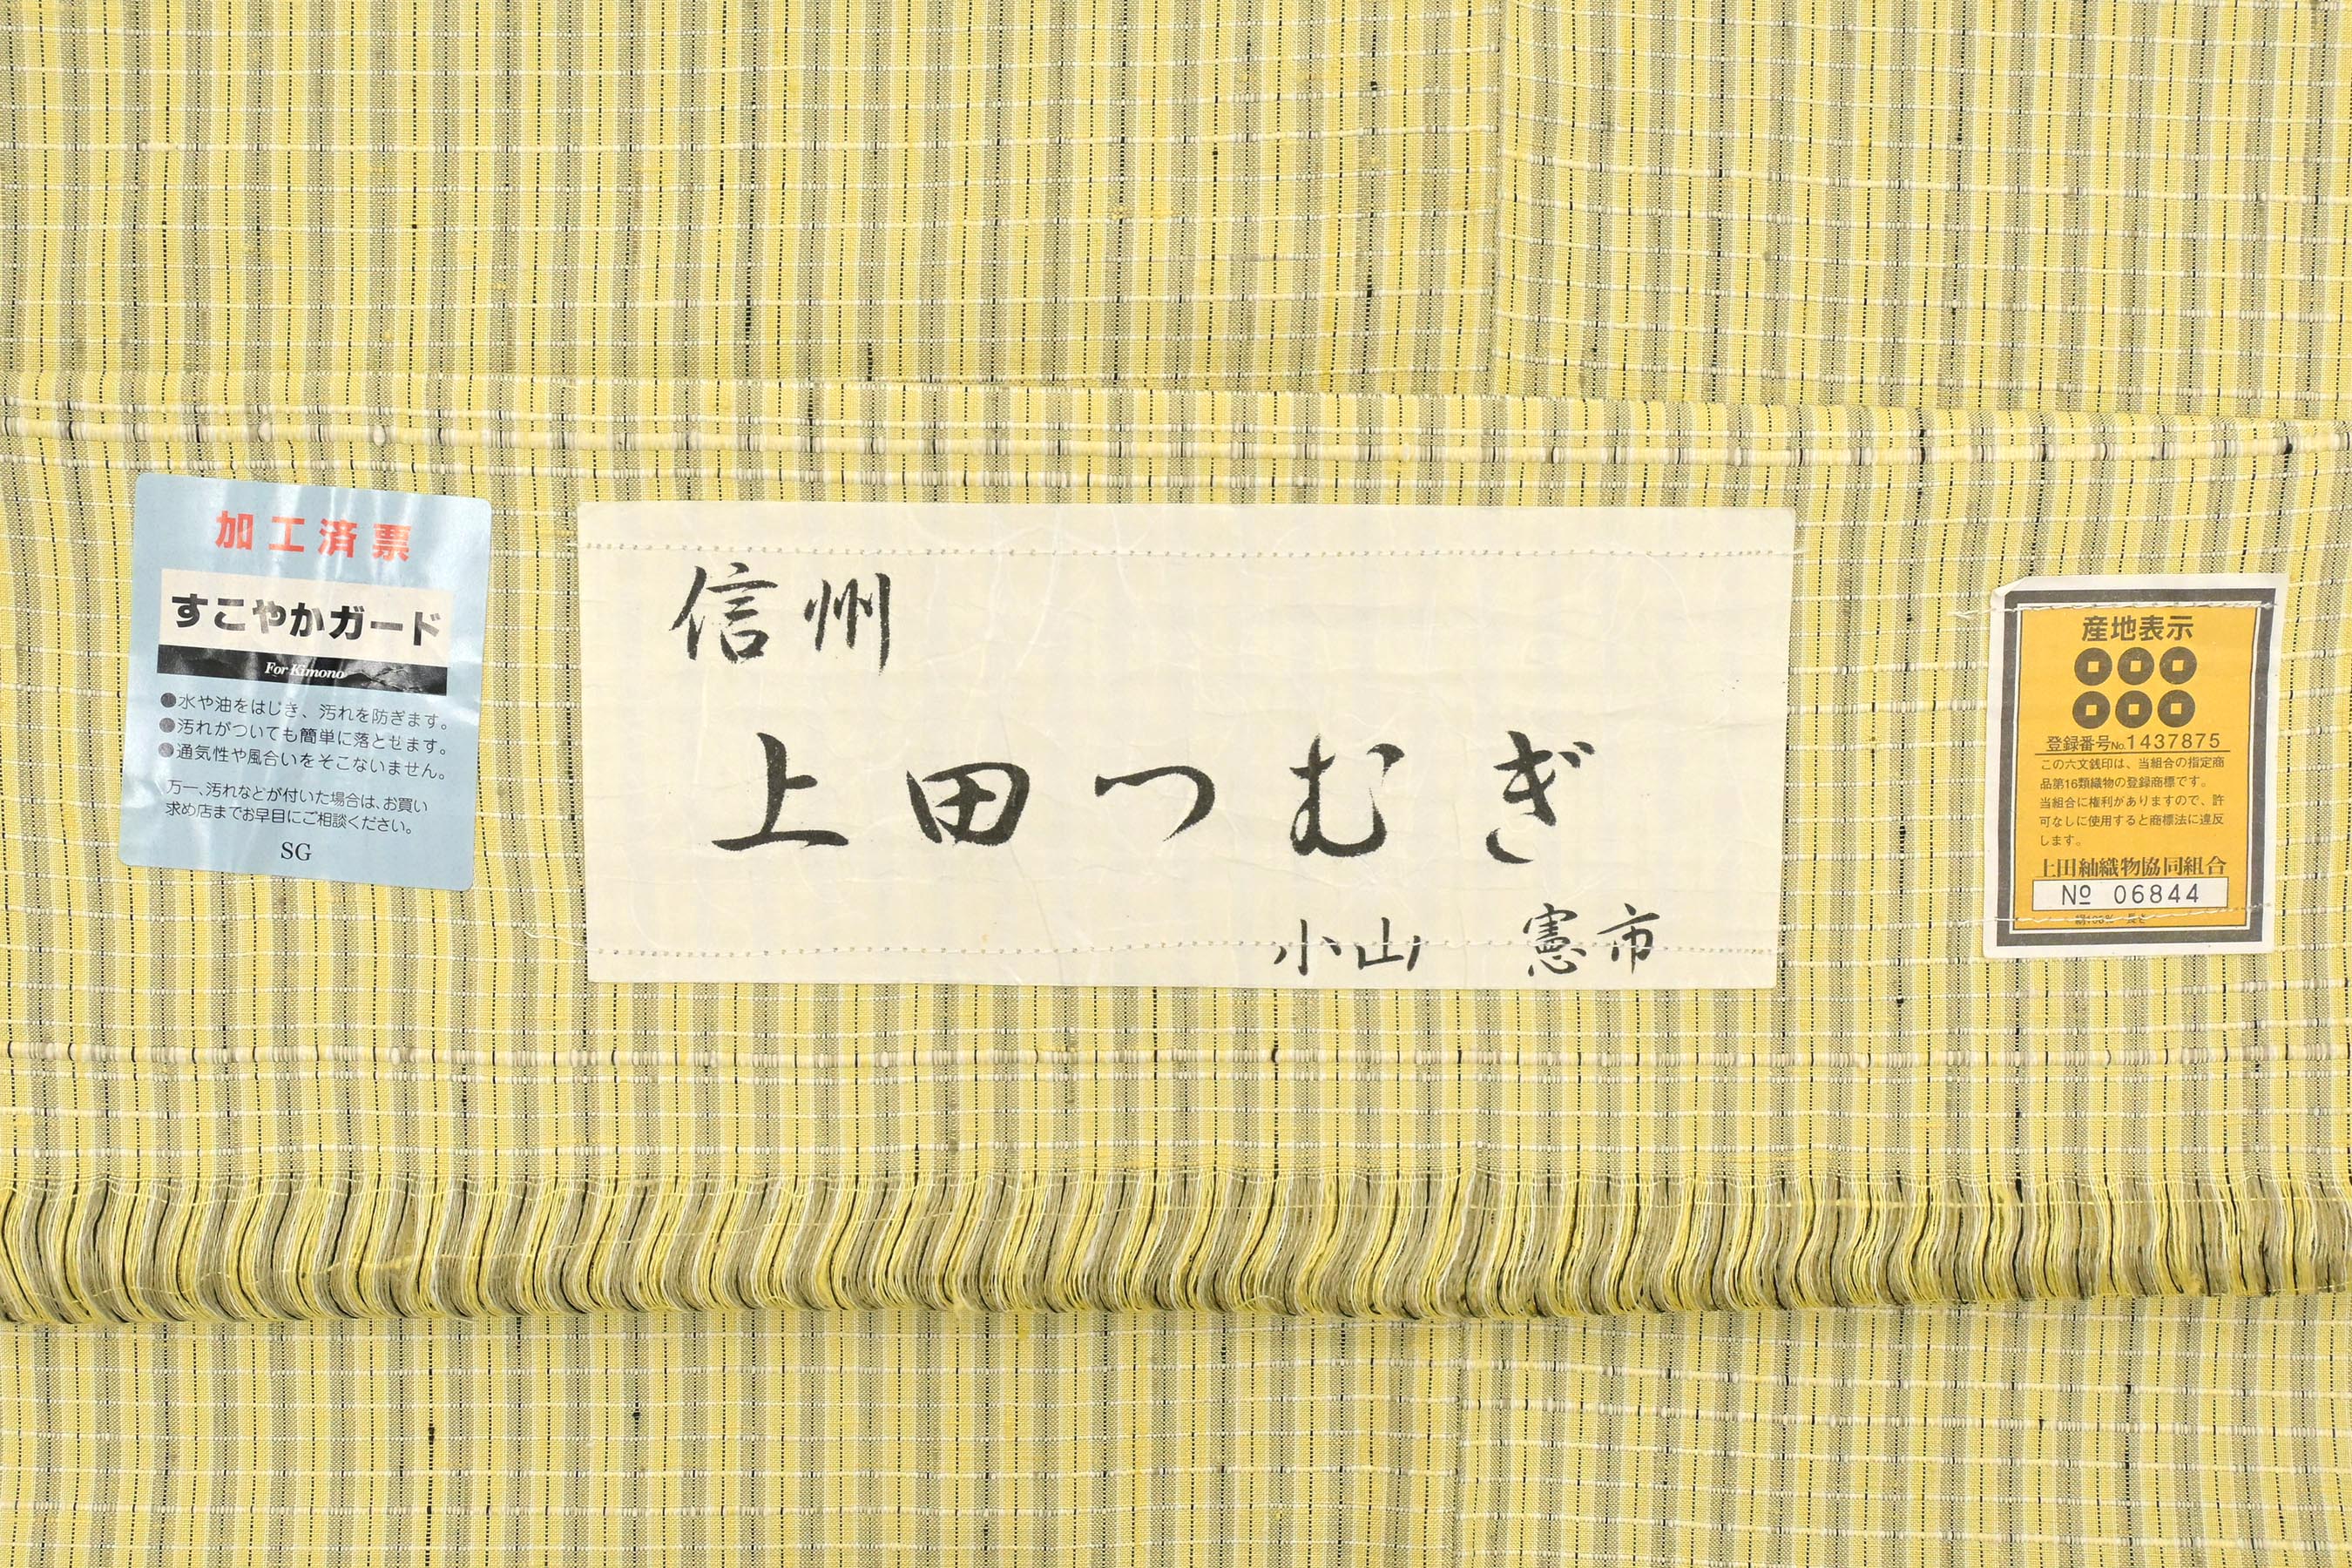 加工済票
すこやかガード
For Kimono
●水や油をはじき、汚れを防ぎます。
●汚れがついても簡単に落とせます。
●通気性や風合いをそこないません。
万一、汚れなどが付いた場合は、お買い
求め店までお早目にご相談ください。
SG
信州
上田つむぎ
小山 憲市
産地表示
登録番号No.1437875
この六文銭印は、当組合の指定商
品第16類織物の登録商標です。
当組合に権利がありますので、許
可なしに使用すると商標法に違反
します。
上田紬織物協同組合
№ 06844